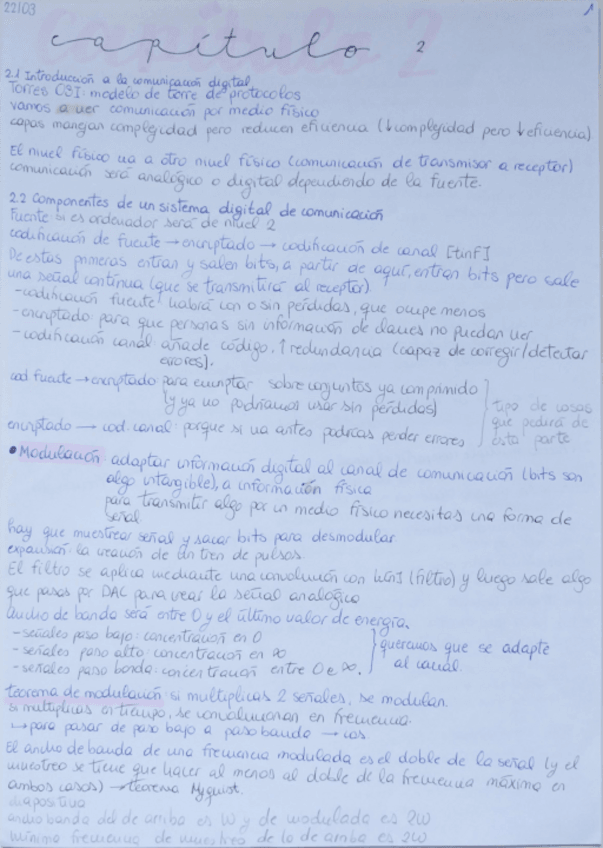 22/03
1
capítulo 2
2.1 Introducción a la comunicación digital
Torres OSI: modelo de torre de protocolos
vamos a ver comunicación por medio físico
capas manejan complejidad pero reducen eficiencia (↓complejidad pero ↓eficiencia)
El nivel físico va a otro nivel físico (comunicación de transmisor a receptor)
comunicación será analógico o digital dependiendo de la fuente.
2.2 Componentes de un sistema digital de comunicación
Fuente: si es ordenador será de nivel 2
codificación de fuente → encriptado → codificación de canal [tinf]
De estas primeras entran y salen bits, a partir de aquí, entran bits pero sale
una señal continua (que se transmitirá al receptor)
- codificación fuente: habrá con o sin pérdidas, que ocupe menos
- encriptado para que personas sin información de claves no puedan ver
- codificación canal: añade código, ↑ redundancia (capaz de corregir/detectar
errores).
cod fuente → encriptado: para encriptar sobre conjuntos ya comprimido
(y ya no podríamos usar sin pérdidas)
tipo de cosas
que pedirá de
esta parte
encriptado → cod. canal: porque si va antes podrías perder errores
• Modulación: adaptar información digital al canal de comunicación (bits son
algo intangible), a información física
para transmitir algo por un medio físico necesitas una forma de
señal
hay que muestrear señal y sacar bits para desmodular
expansión: la creación de un tren de pulsos
El filtro se aplica mediante una convolución con (filtro) y luego sale algo
que pasas por DAC para crear la señal analógico
Ancho de banda será entre 0 y el último valor de energía.
- señales paso bajo: concentración en 0
- señales paso alto: concentración en ∞
- señales paso banda: concentración entre 0 e ∞.
queramos que se adapte
al canal.
teorema de modulación: si multiplicas 2 señales, se modulan.
si multiplicas en tiempo, se convolucionan en frecuencia.
↳ para pasar de paso bajo a paso banda → cos
El ancho de banda de una frecuencia modulada es el doble de la señal (y el
muestreo se tiene que hacer al menos al doble de la frecuencia máxima en
ambos casos) → teorema Nyquist.
diapositiva
ancho banda del de arriba es W y de modulada es 2W
mínima frecuencia de muestreo de lo de arriba es 2W